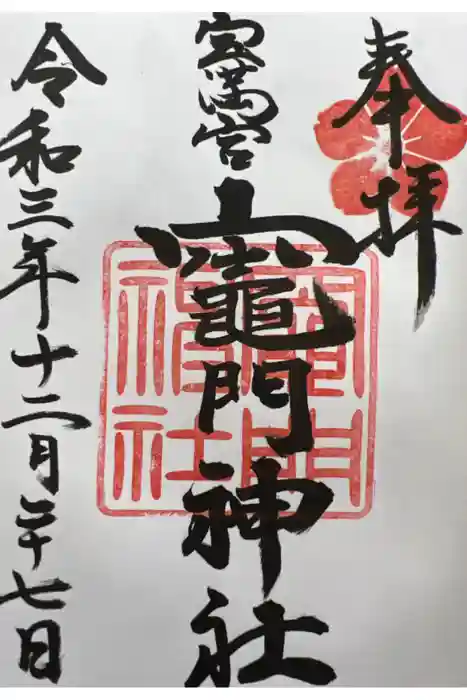 奉拝
宝満宮
竈門神社
竈門神社
令和三年十二月二十七日